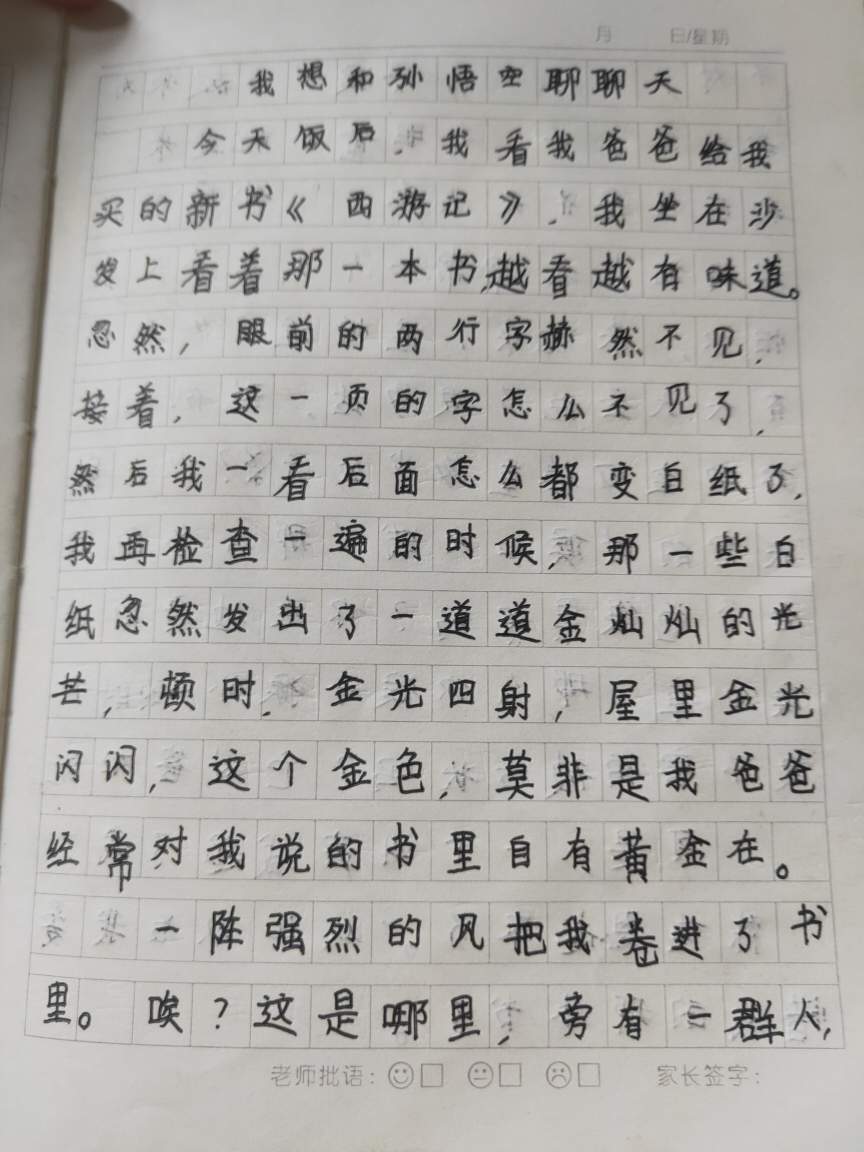 月 日/星期
我想和孙悟空聊聊天
今天饭后，我看我爸爸给我
买的新书《西游记》，我坐在沙
发上看着那一本书，越看越有味道。
忽然，眼前的两行字赫然不见，
接着，这一页的字怎么不见了，
然后我一看后面怎么都变白纸了，
我再检查一遍的时候，那一些白
纸忽然发出了一道道金灿灿的光
芒，顿时，金光四射，屋里金光
闪闪，这个金色，莫非是我爸爸
经常对我说的书里自有黄金在。
一阵强烈的风把我卷进了书
里。唉？这是哪里，旁有一群人，
老师批语： 家长签字：